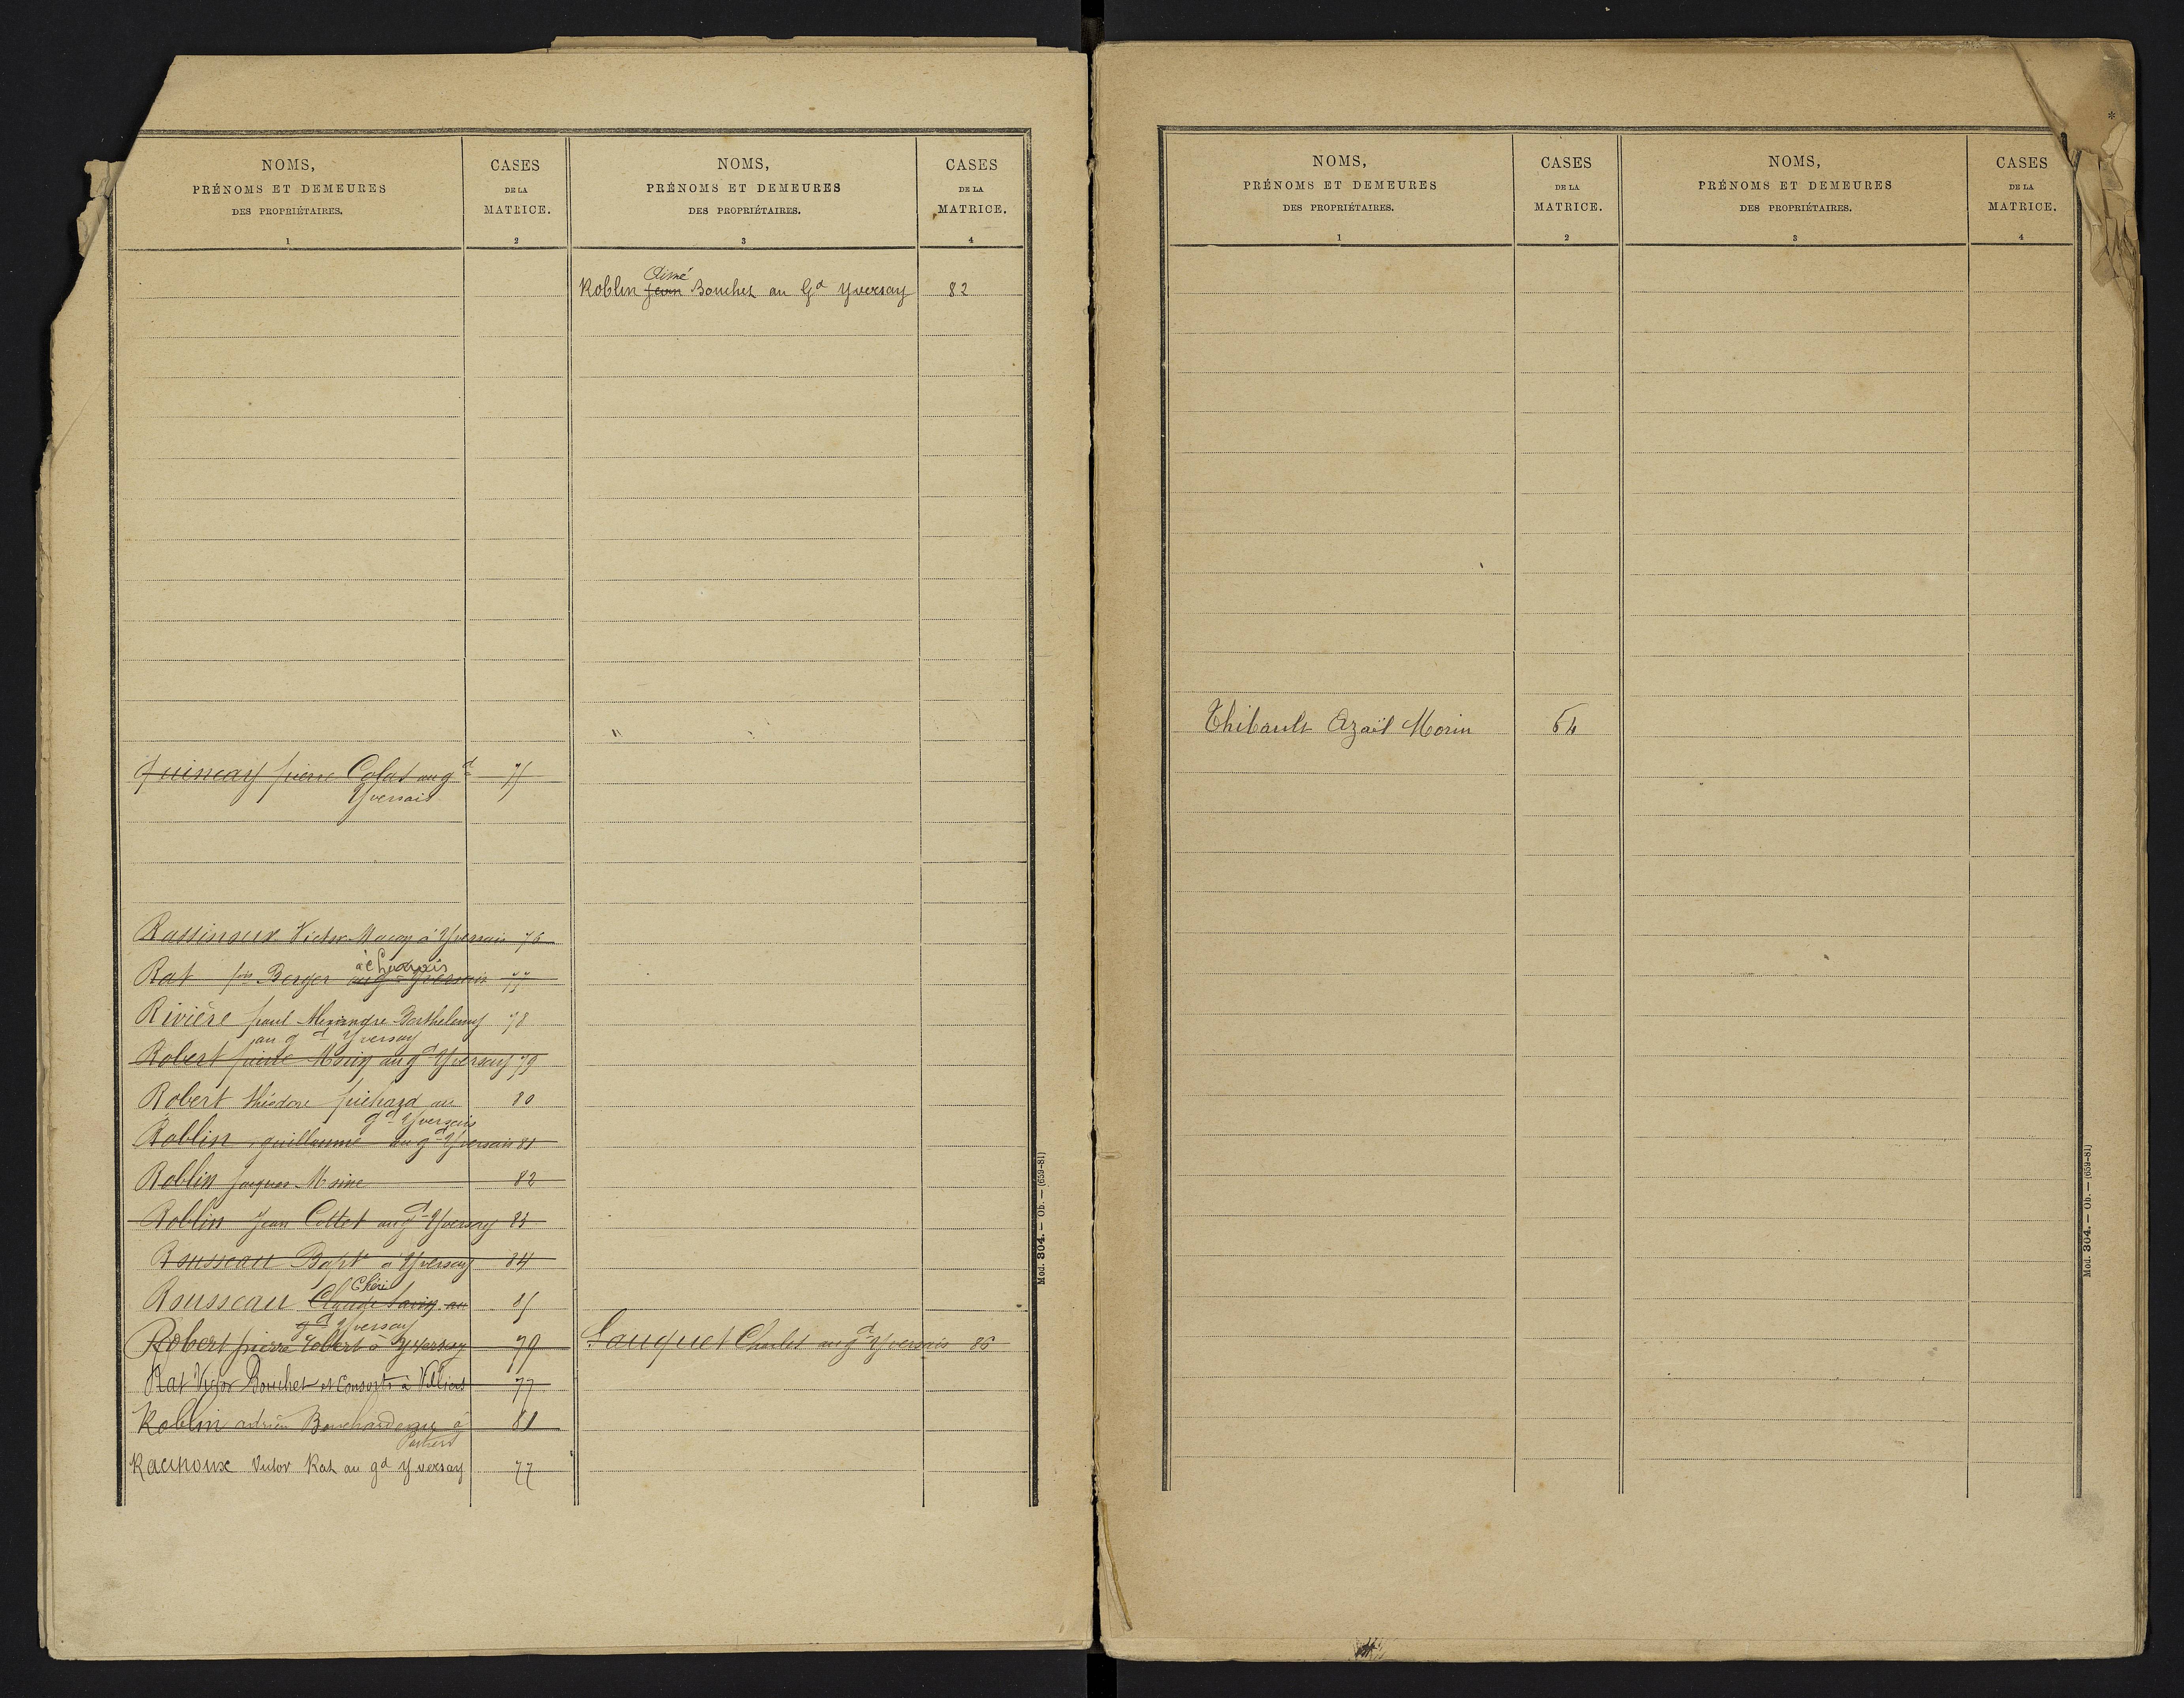 NOMS,
PRÉNOMS ET DEMEURES
DES PROPRIÉTAIRES.
1
CASES
DE LA
MATRICE.
2
NOMS,
PRÉNOMS ET DEMEURES
DES PROPRIÉTAIRES.
3
CASES
DE LA
MATRICE.
4
Quincay pierre Colas au gd 75
Yversais
Rassinoux Victor Macoy à Yversais 76
à Charrais
Rat fois Berger au gd Yversais 77
Rivière paul Alexandre Berthelemy 78
au gd Yversay
Robert pierre Morin au gd Yversay 79
Robert théodore pichard au 80
gd Yversais
Roblin guillaume au gd Yversais 81
Roblin Jacques 82
Roblin Jean Cottet au gd Yversay 83
Rousseau Bapt à Yversay 84
Chéri
Rousseau Claude Savin au 85
gd Yversay
Robert pierre à Yversay 79
Rat Victor Bouchet et Consorts à Villiers 77
Roblin adrien Bouchardeau à 81
Poitiers
Racinoux Victor Rat au gd Yversay 77
Aimé
Roblin Jean Bouchet au Gd Yversay 82
Sauquet Charles au gd Yversais 86
Mod. 304. — Ob. — (659-81)
NOMS,
PRÉNOMS ET DEMEURES
DES PROPRIÉTAIRES.
1
CASES
DE LA
MATRICE.
2
NOMS,
PRÉNOMS ET DEMEURES
DES PROPRIÉTAIRES.
3
CASES
DE LA
MATRICE.
4
Thibault Azaïl Morin 54
Mod. 304. — Ob. — (659-81)